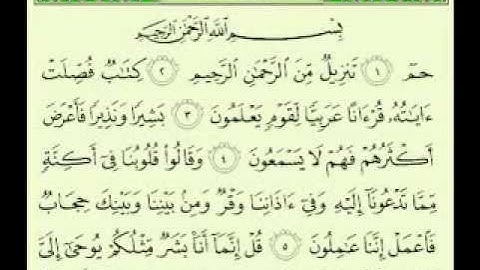 بِسْمِ اللَّهِ الرَّحْمَٰنِ الرَّحِيمِ
حمٓ ١ تَنزِيلٌ مِّنَ الرَّحْمَٰنِ الرَّحِيمِ ٢ كِتَابٌ فُصِّلَتْ
ءَايَاتُهُۥ قُرْءَانًا عَرَبِيًّا لِّقَوْمٍ يَعْلَمُونَ ٣ بَشِيرًا وَنَذِيرًا فَأَعْرَضَ
أَكْثَرُهُمْ فَهُمْ لَا يَسْمَعُونَ ٤ وَقَالُوا۟ قُلُوبُنَا فِىٓ أَكِنَّةٍ
مِّمَّا تَدْعُونَآ إِلَيْهِ وَفِىٓ ءَاذَانِنَا وَقْرٌ وَمِنۢ بَيْنِنَا وَبَيْنِكَ حِجَابٌ
فَاعْمَلْ إِنَّنَا عَامِلُونَ ٥ قُلْ إِنَّمَآ أَنَا۠ بَشَرٌ مِّثْلُكُمْ يُوحَىٰٓ إِلَىَّ